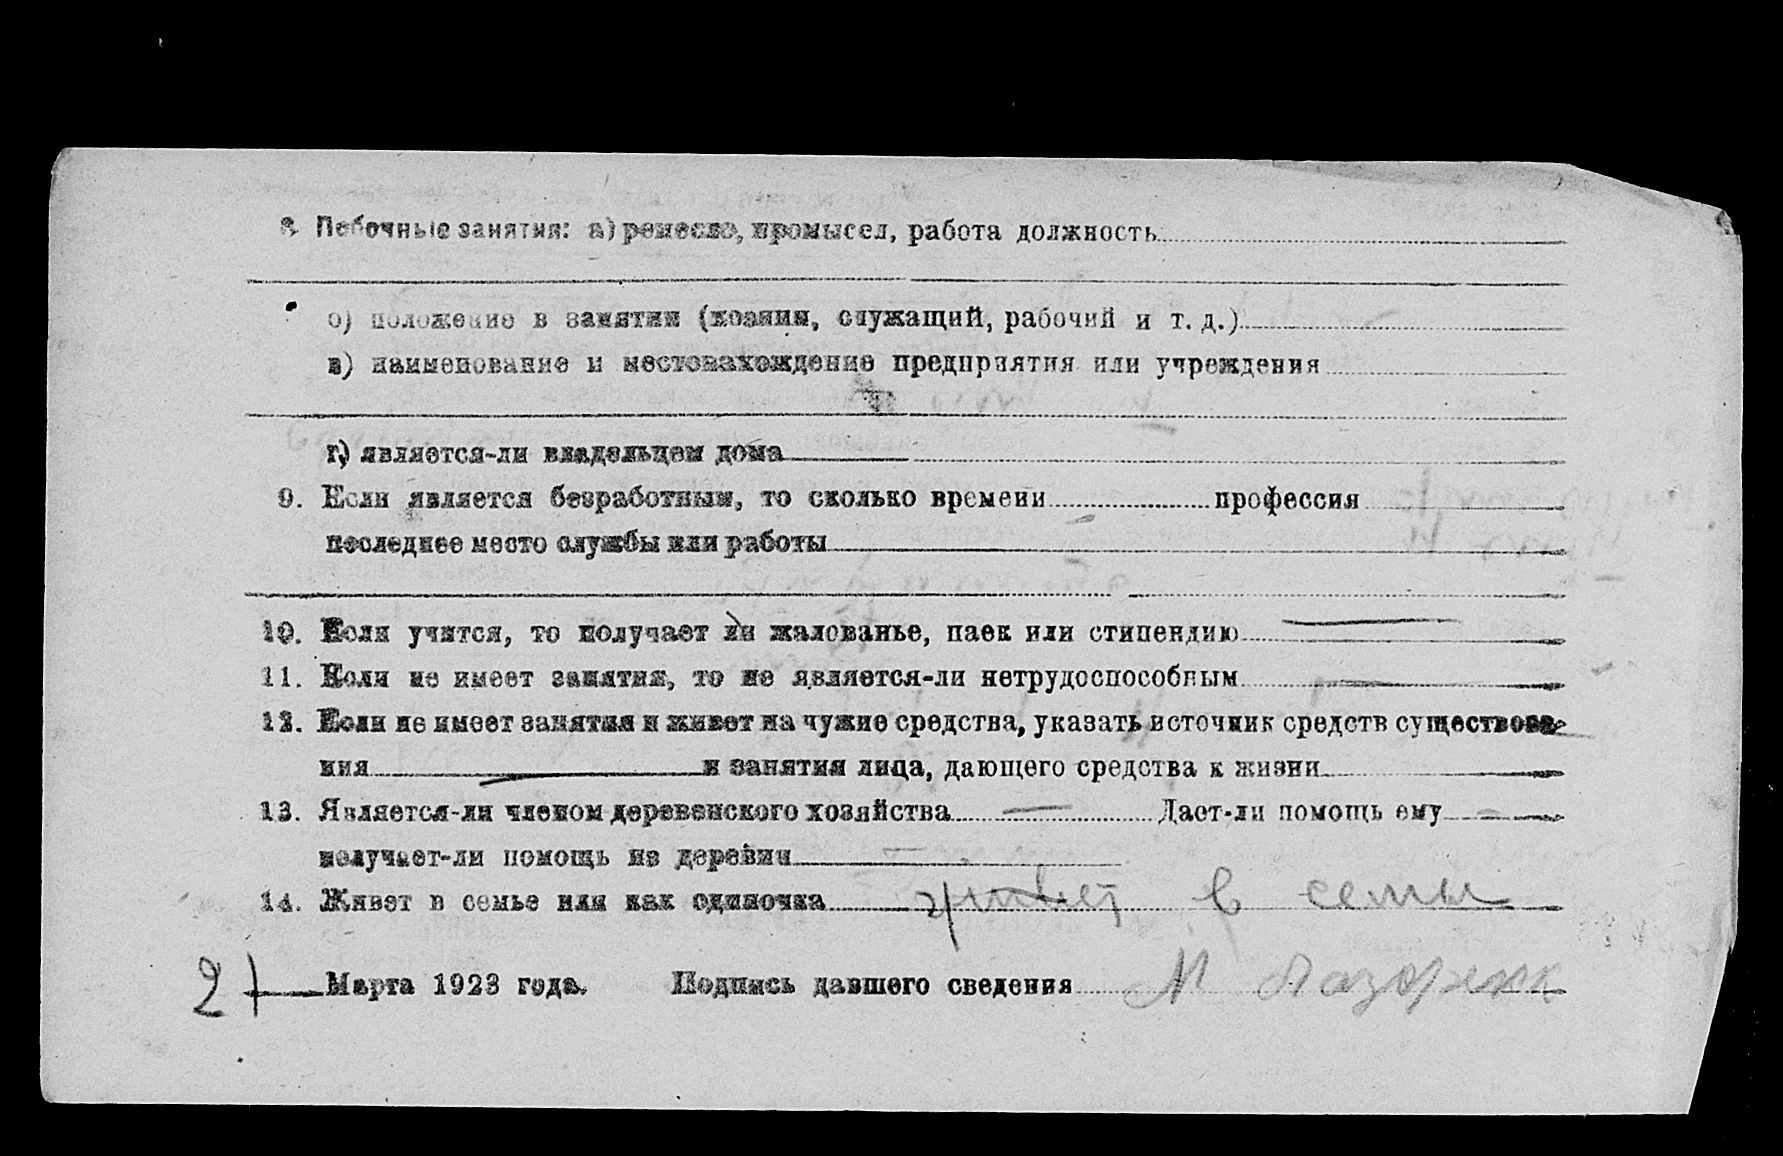 8. Побочные занятия: а) ремесло, промысел, работа должность
б) положение в занятии (хозяин, служащий, рабочий и т. д.)
в) наименование и местонахождение предприятия или учреждения
г) является-ли владельцем дома
9. Если является безработным, то сколько времени профессия
последнее место службы или работы
10. Если учится, то получает ли жалованье, паек или стипендию
11. Если не имеет занятия, то не является-ли нетрудоспособным
12. Если не имеет занятия и живет на чужие средства, указать источник средств существова-
ния и занятия лица, дающего средства к жизни
13. Является-ли членом деревенского хозяйства Дает-ли помощь ему
получает-ли помощь из деревни
14. Живет в семье или как одиночка живет в семьи
27 Марта 1923 года. Подпись давшего сведения М